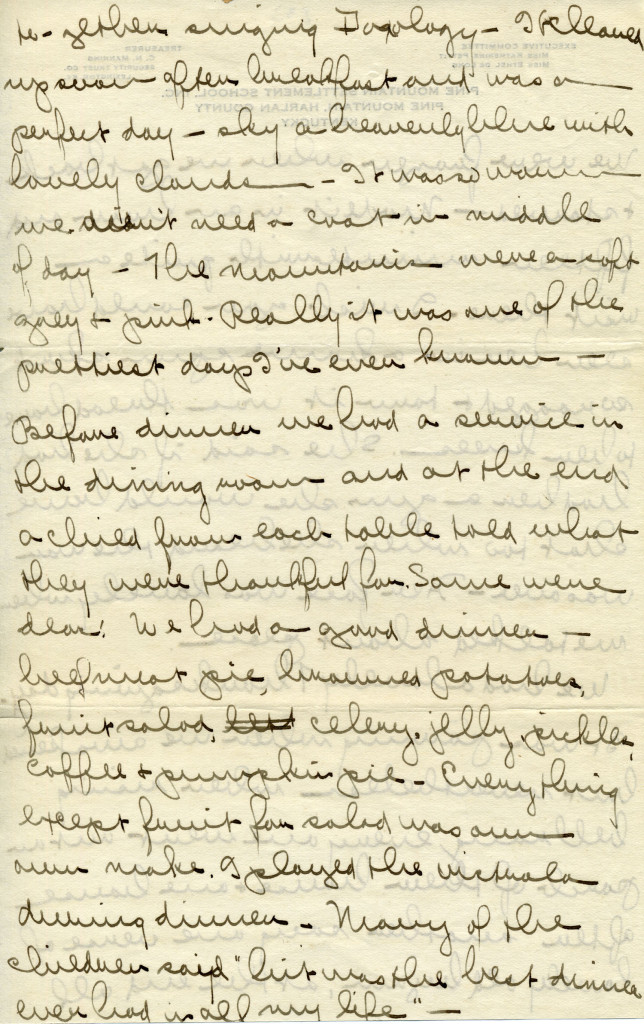 to-gether singing Doxology - It cleared
up soon after breakfast and was a
perfect day - sky a heavenly blue with
lovely clouds - It was so warm
we didn't need a coat in middle
of day - The mountains were a soft
grey & pink. Really it was one of the
prettiest days I've ever known -
Before dinner we had a service in
the dining room and at the end
a child from each table told what
they were thankful for. Some were
dear! We had a good dinner -
beef meat pie, browned potatoes,
fruit salad, celery, jelly, pickles,
coffee & pumpkin pie - Everything
except fruit for salad was our
own make. I played the victrola
during dinner - Many of the
children said "hit was the best dinner
ever had in all my life" -
EXECUTIVE COMMITTEE
TREASURER
PINE MOUNTAIN SETTLEMENT SCHOOL, INC.
PINE MOUNTAIN, HARLAN COUNTY
KENTUCKY